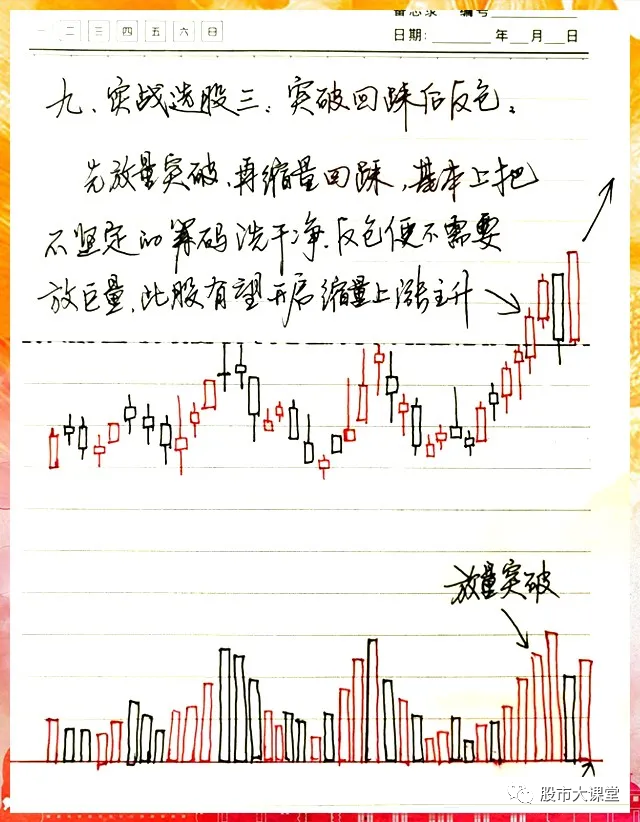 备忘录 编号
一 二 三 四 五 六 日
日期: 年 月 日
九、实战选股三：突破回踩后反包。
先放量突破，再缩量回踩，基本上把
不坚定的筹码洗干净，反包便不需要
放巨量，此股有望开启缩量上涨主升
放量突破
股市大课堂